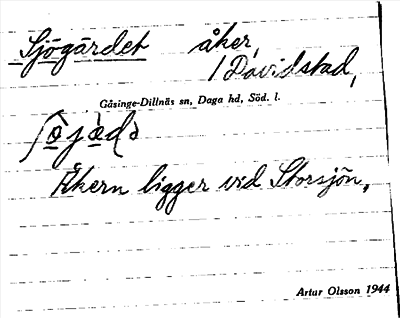 Sjögärdet åker,
/ Davidstad,
Gåsinge-Dillnäs sn, Daga hd, Söd. l.
Åkern ligger vid Storsjön.
Artur Olsson 1944